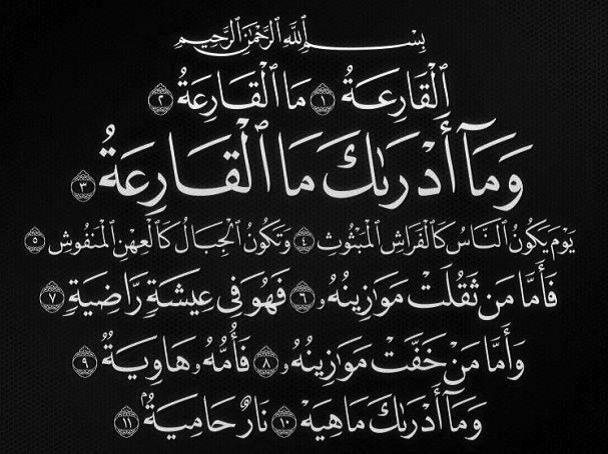 بِسْمِ ٱللَّهِ ٱلرَّحْمَٰنِ ٱلرَّحِيمِ
ٱلْقَارِعَةُ ١ مَا ٱلْقَارِعَةُ ٢
وَمَآ أَدْرَىٰكَ مَا ٱلْقَارِعَةُ ٣
يَوْمَ يَكُونُ ٱلنَّاسُ كَٱلْفَرَاشِ ٱلْمَبْثُوثِ ٤ وَتَكُونُ ٱلْجِبَالُ كَٱلْعِهْنِ ٱلْمَنفُوشِ ٥
فَأَمَّا مَن ثَقُلَتْ مَوَٰزِينُهُۥ ٦ فَهُوَ فِى عِيشَةٍ رَّاضِيَةٍ ٧
وَأَمَّا مَنْ خَفَّتْ مَوَٰزِينُهُۥ ٨ فَأُمُّهُۥ هَاوِيَةٌ ٩
وَمَآ أَدْرَىٰكَ مَا هِيَهْ ١٠ نَارٌ حَامِيَةٌۢ ١١